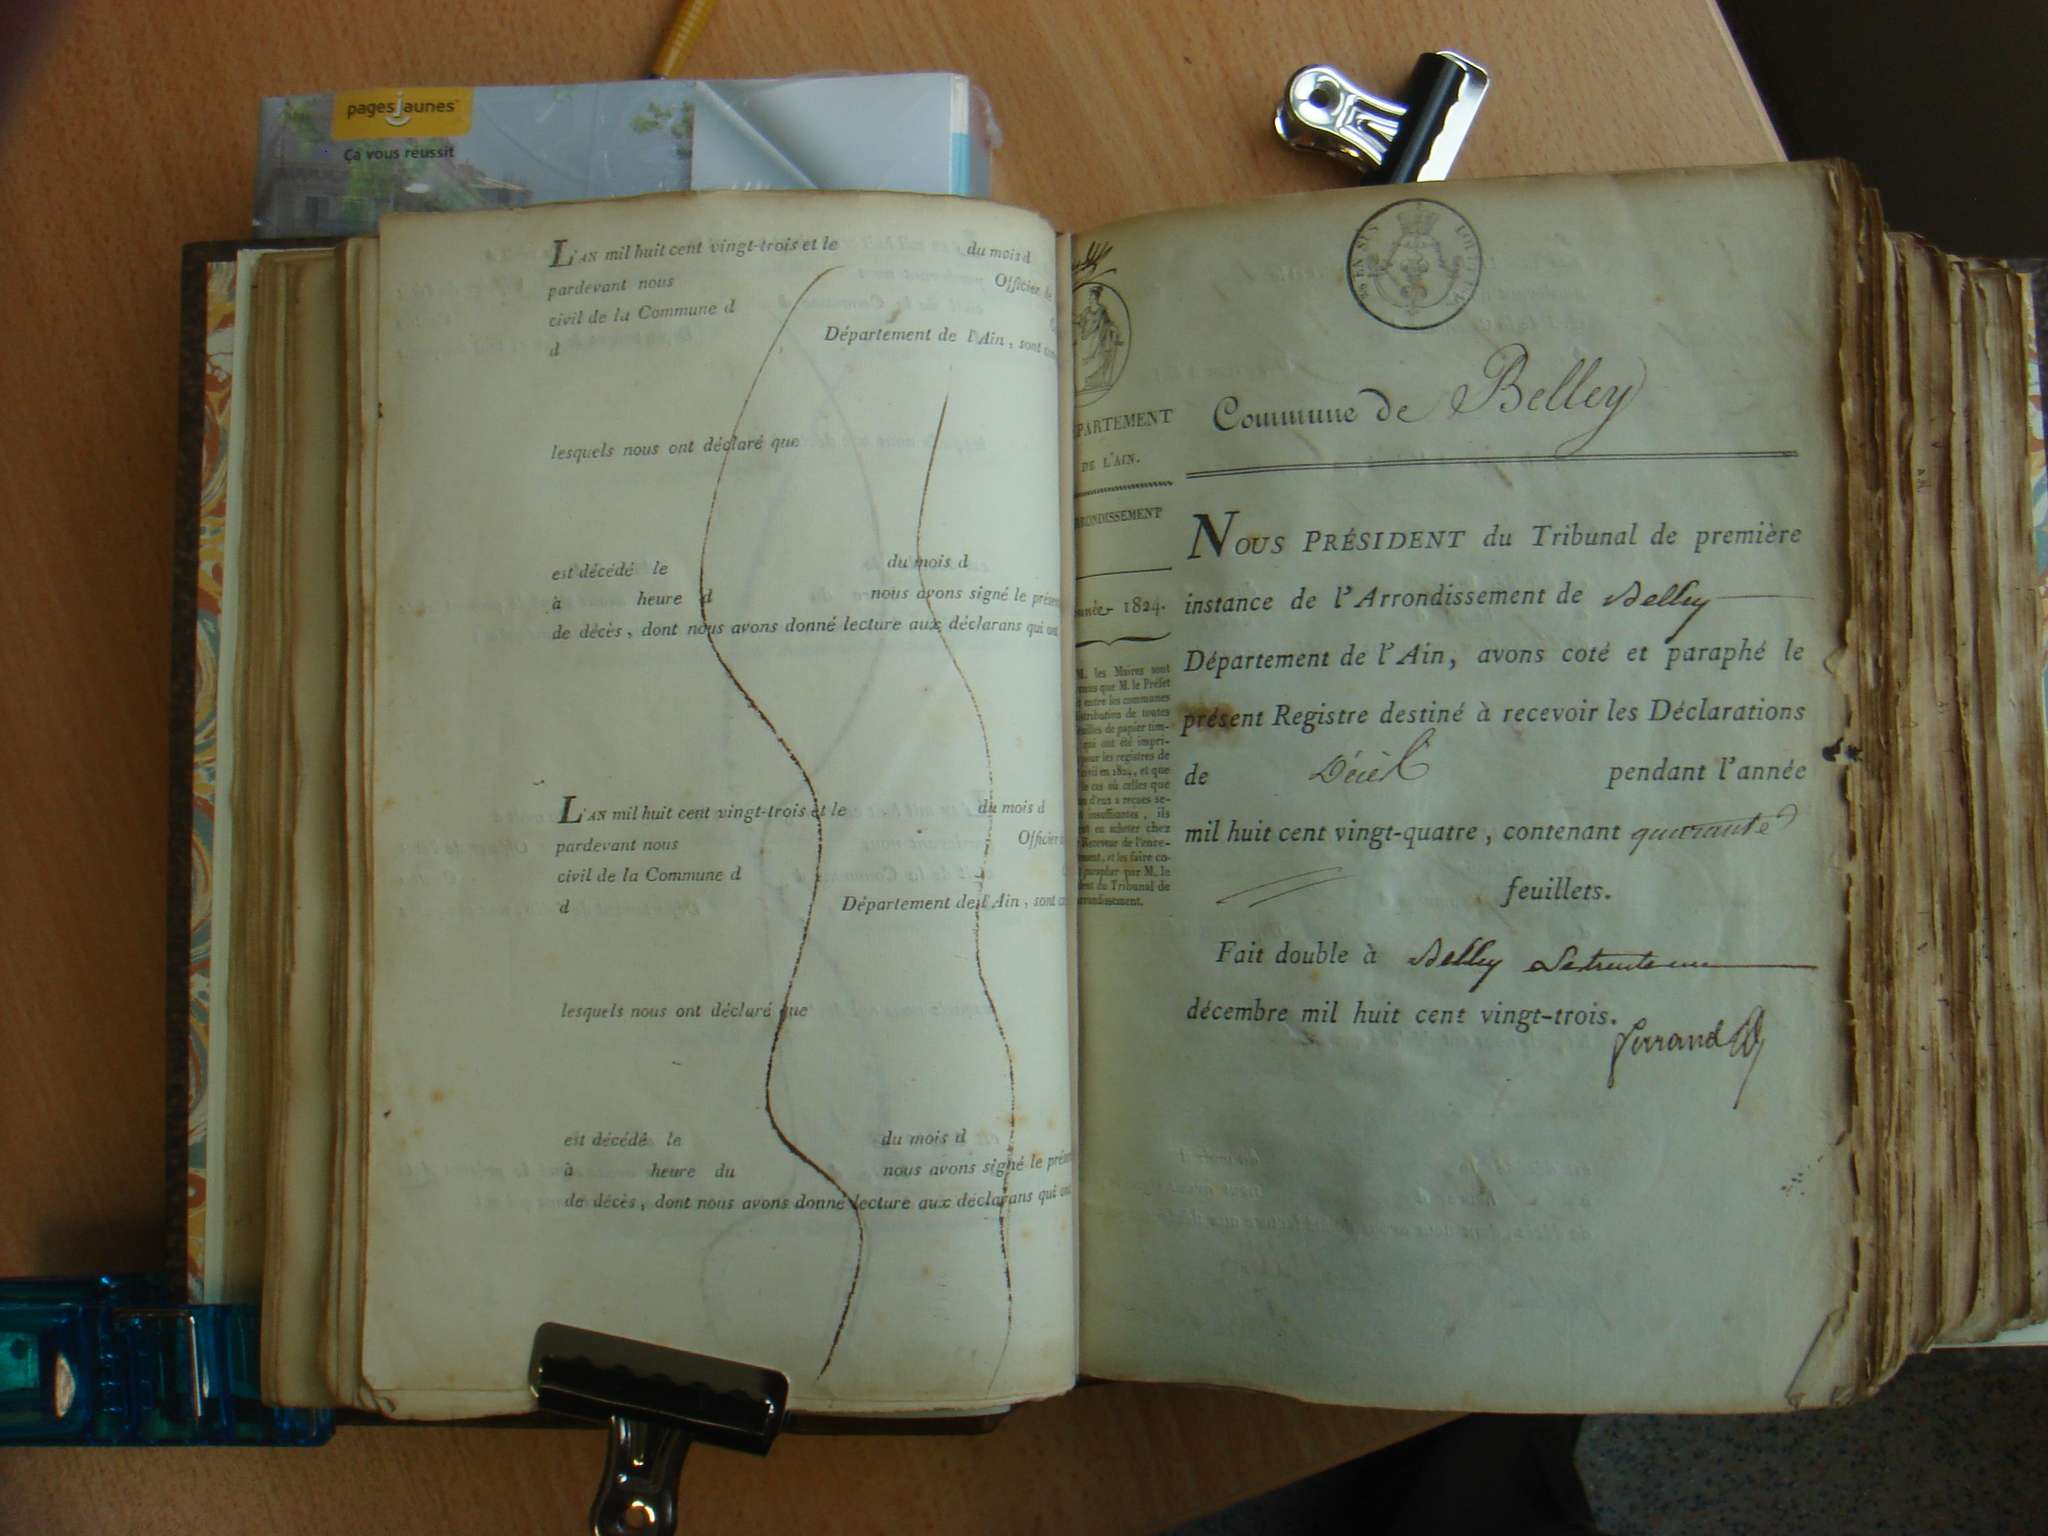 pagesjaunes
Ça vous réussit
L'AN mil huit cent vingt-trois et le du mois d
pardevant nous Officier de
civil de la Commune d
d Département de l'Ain, sont
lesquels nous ont déclaré que
est décédé le du mois d
à heure d nous avons signé le présen
de décès, dont nous avons donné lecture aux déclarans qui ont
L'AN mil huit cent vingt-trois et le du mois d
pardevant nous Officier
civil de la Commune d
d Département de l'Ain, sont
lesquels nous ont déclaré que
est décédé le du mois d
à heure du nous avons signé le présen
de décès, dont nous avons donné lecture aux déclarans qui ont
PARTEMENT
DE L'AIN.
RONDISSEMENT
année 1824.
M. les Maires sont
que M. le Préfet
entre les communes
stribution de toutes
uilles de papier tim-
qui ont été impri-
pour les registres de
civil en 1824, et que
le cas où celles que
d'eux a reçues se-
insuffisantes, ils
en acheter chez
Receveur de l'enre-
ment, et les faire co-
parapher par M. le
du Tribunal de
arrondissement.
Commune de Belley
NOUS PRÉSIDENT du Tribunal de première
instance de l'Arrondissement de Belley
Département de l'Ain, avons coté et paraphé le
présent Registre destiné à recevoir les Déclarations
de Décès pendant l'année
mil huit cent vingt-quatre, contenant quarante
feuillets.
Fait double à Belley le trente un
décembre mil huit cent vingt-trois.
Ferrand